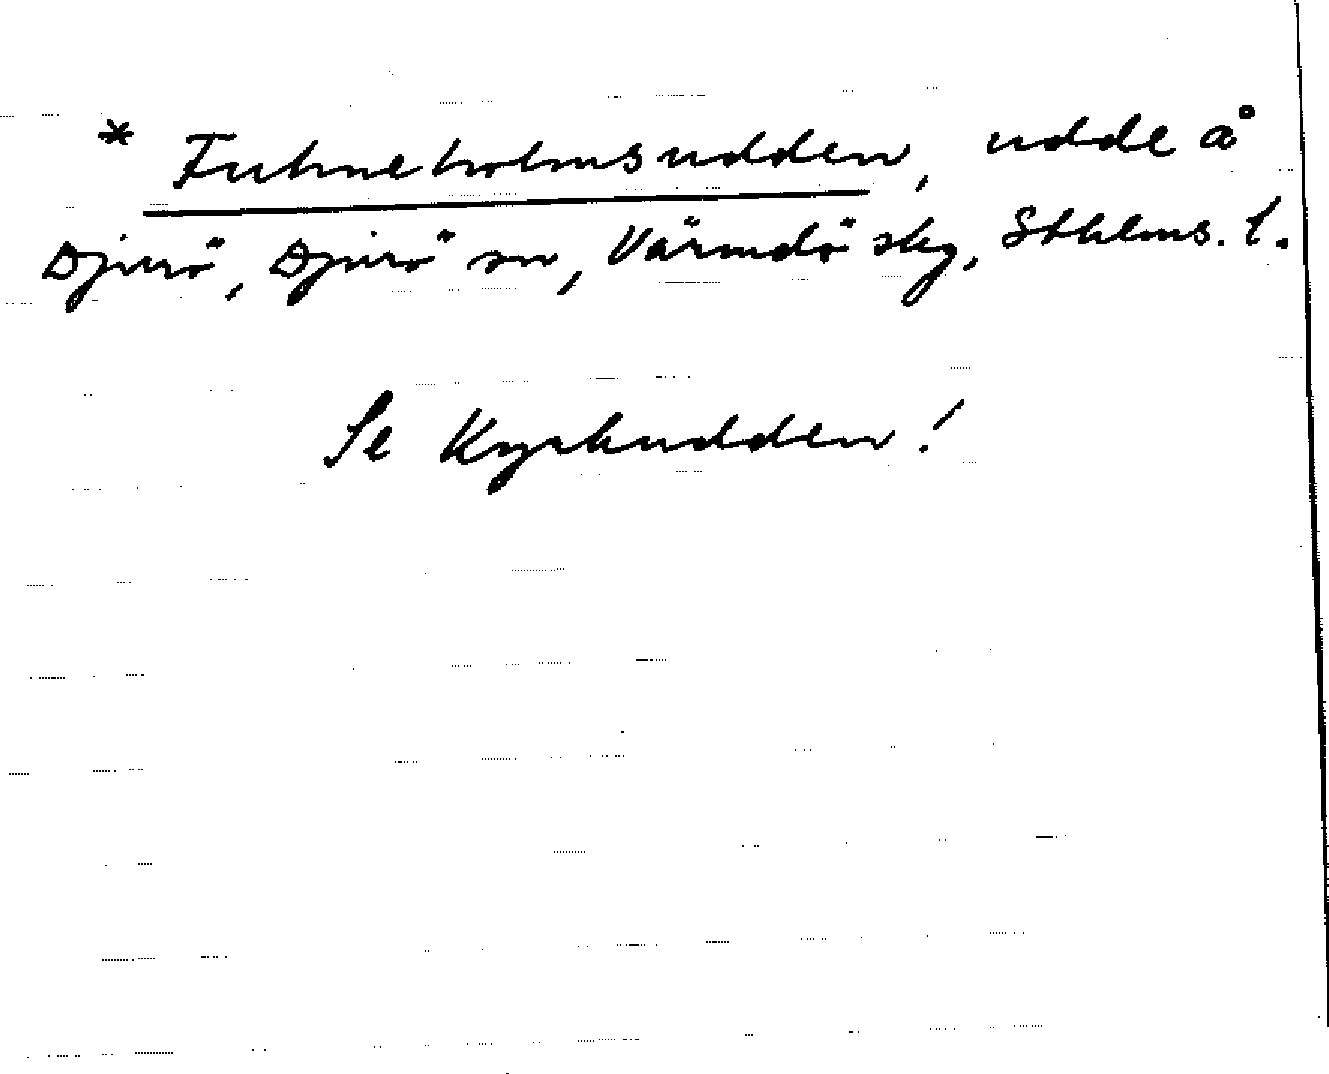 * Fuhneholmsudden, udde å
Djurö, Djurö sn, Värmdö skg, Sthlms. l.
Se Kyrkudden!